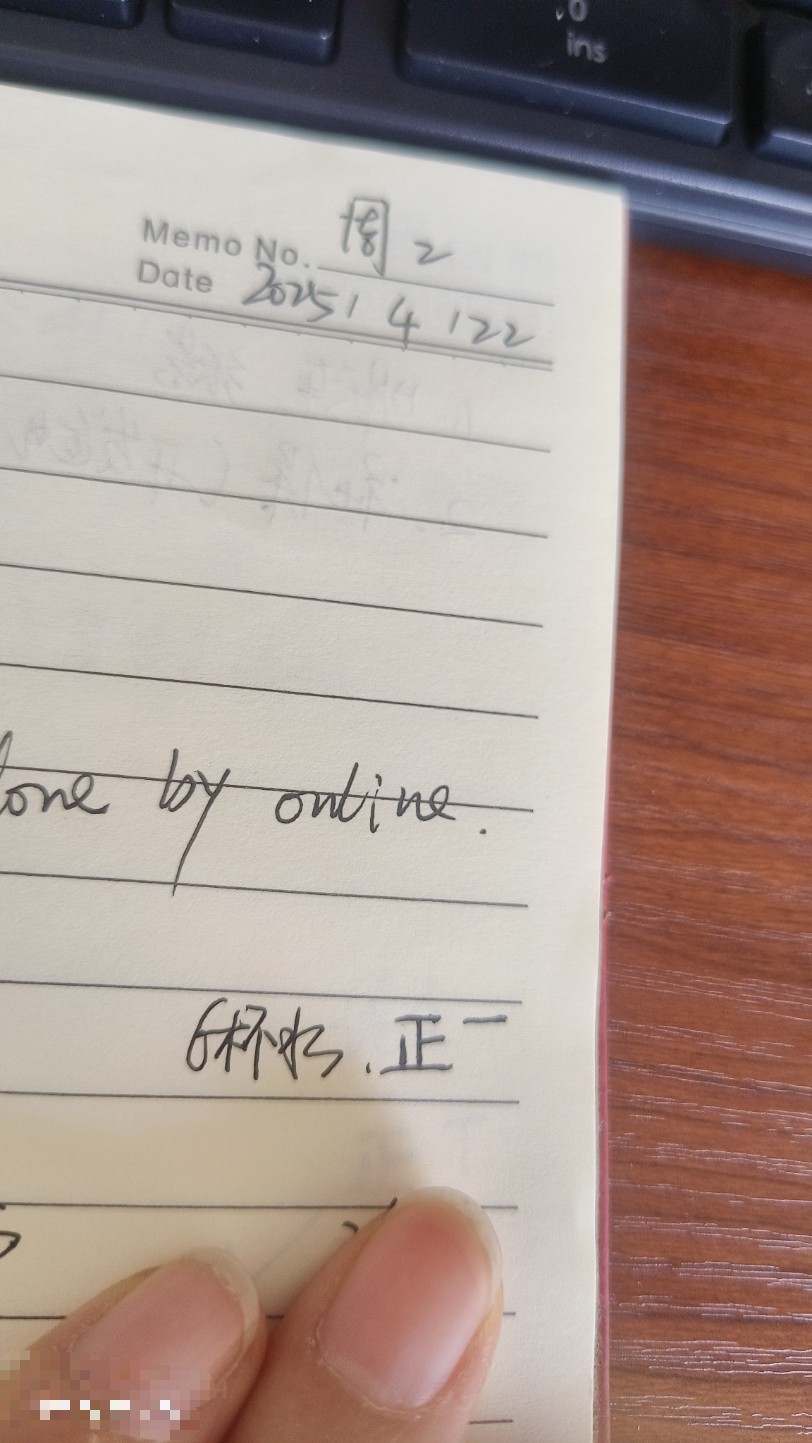 0
ins
Memo No. 周2
Date 2025/4/22
by online.
6杯水.正一